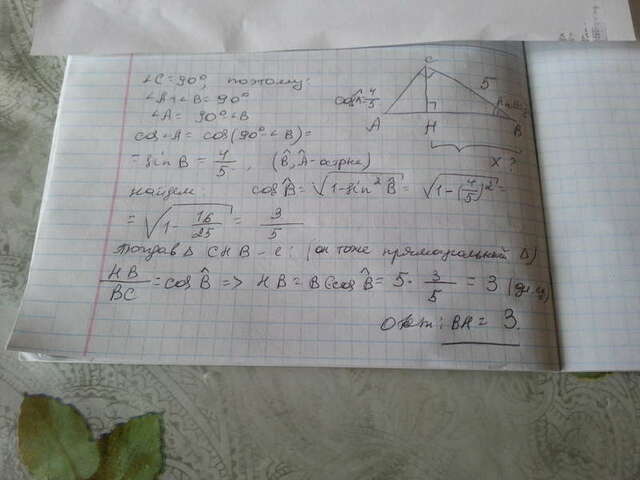 ∠C = 90°, поэтому:
∠A + ∠B = 90°
∠A = 90° - ∠B
cos ∠A = cos(90° - ∠B) =
= sin B = 4/5, (B̂, Â - острые)
найдем: cos B̂ = √(1 - sin² B̂) = √(1 - (4/5)²) =
= √(1 - 16/25) = 3/5
тогда в Δ CHB - е: (он тоже прямоугольный Δ)
HB/BC = cos B̂ => HB = BC cos B̂ = 5 · 3/5 = 3 (ед.)
Ответ: BH = 3.
C
5
cos Â = 4/5
A
H
B
x ?